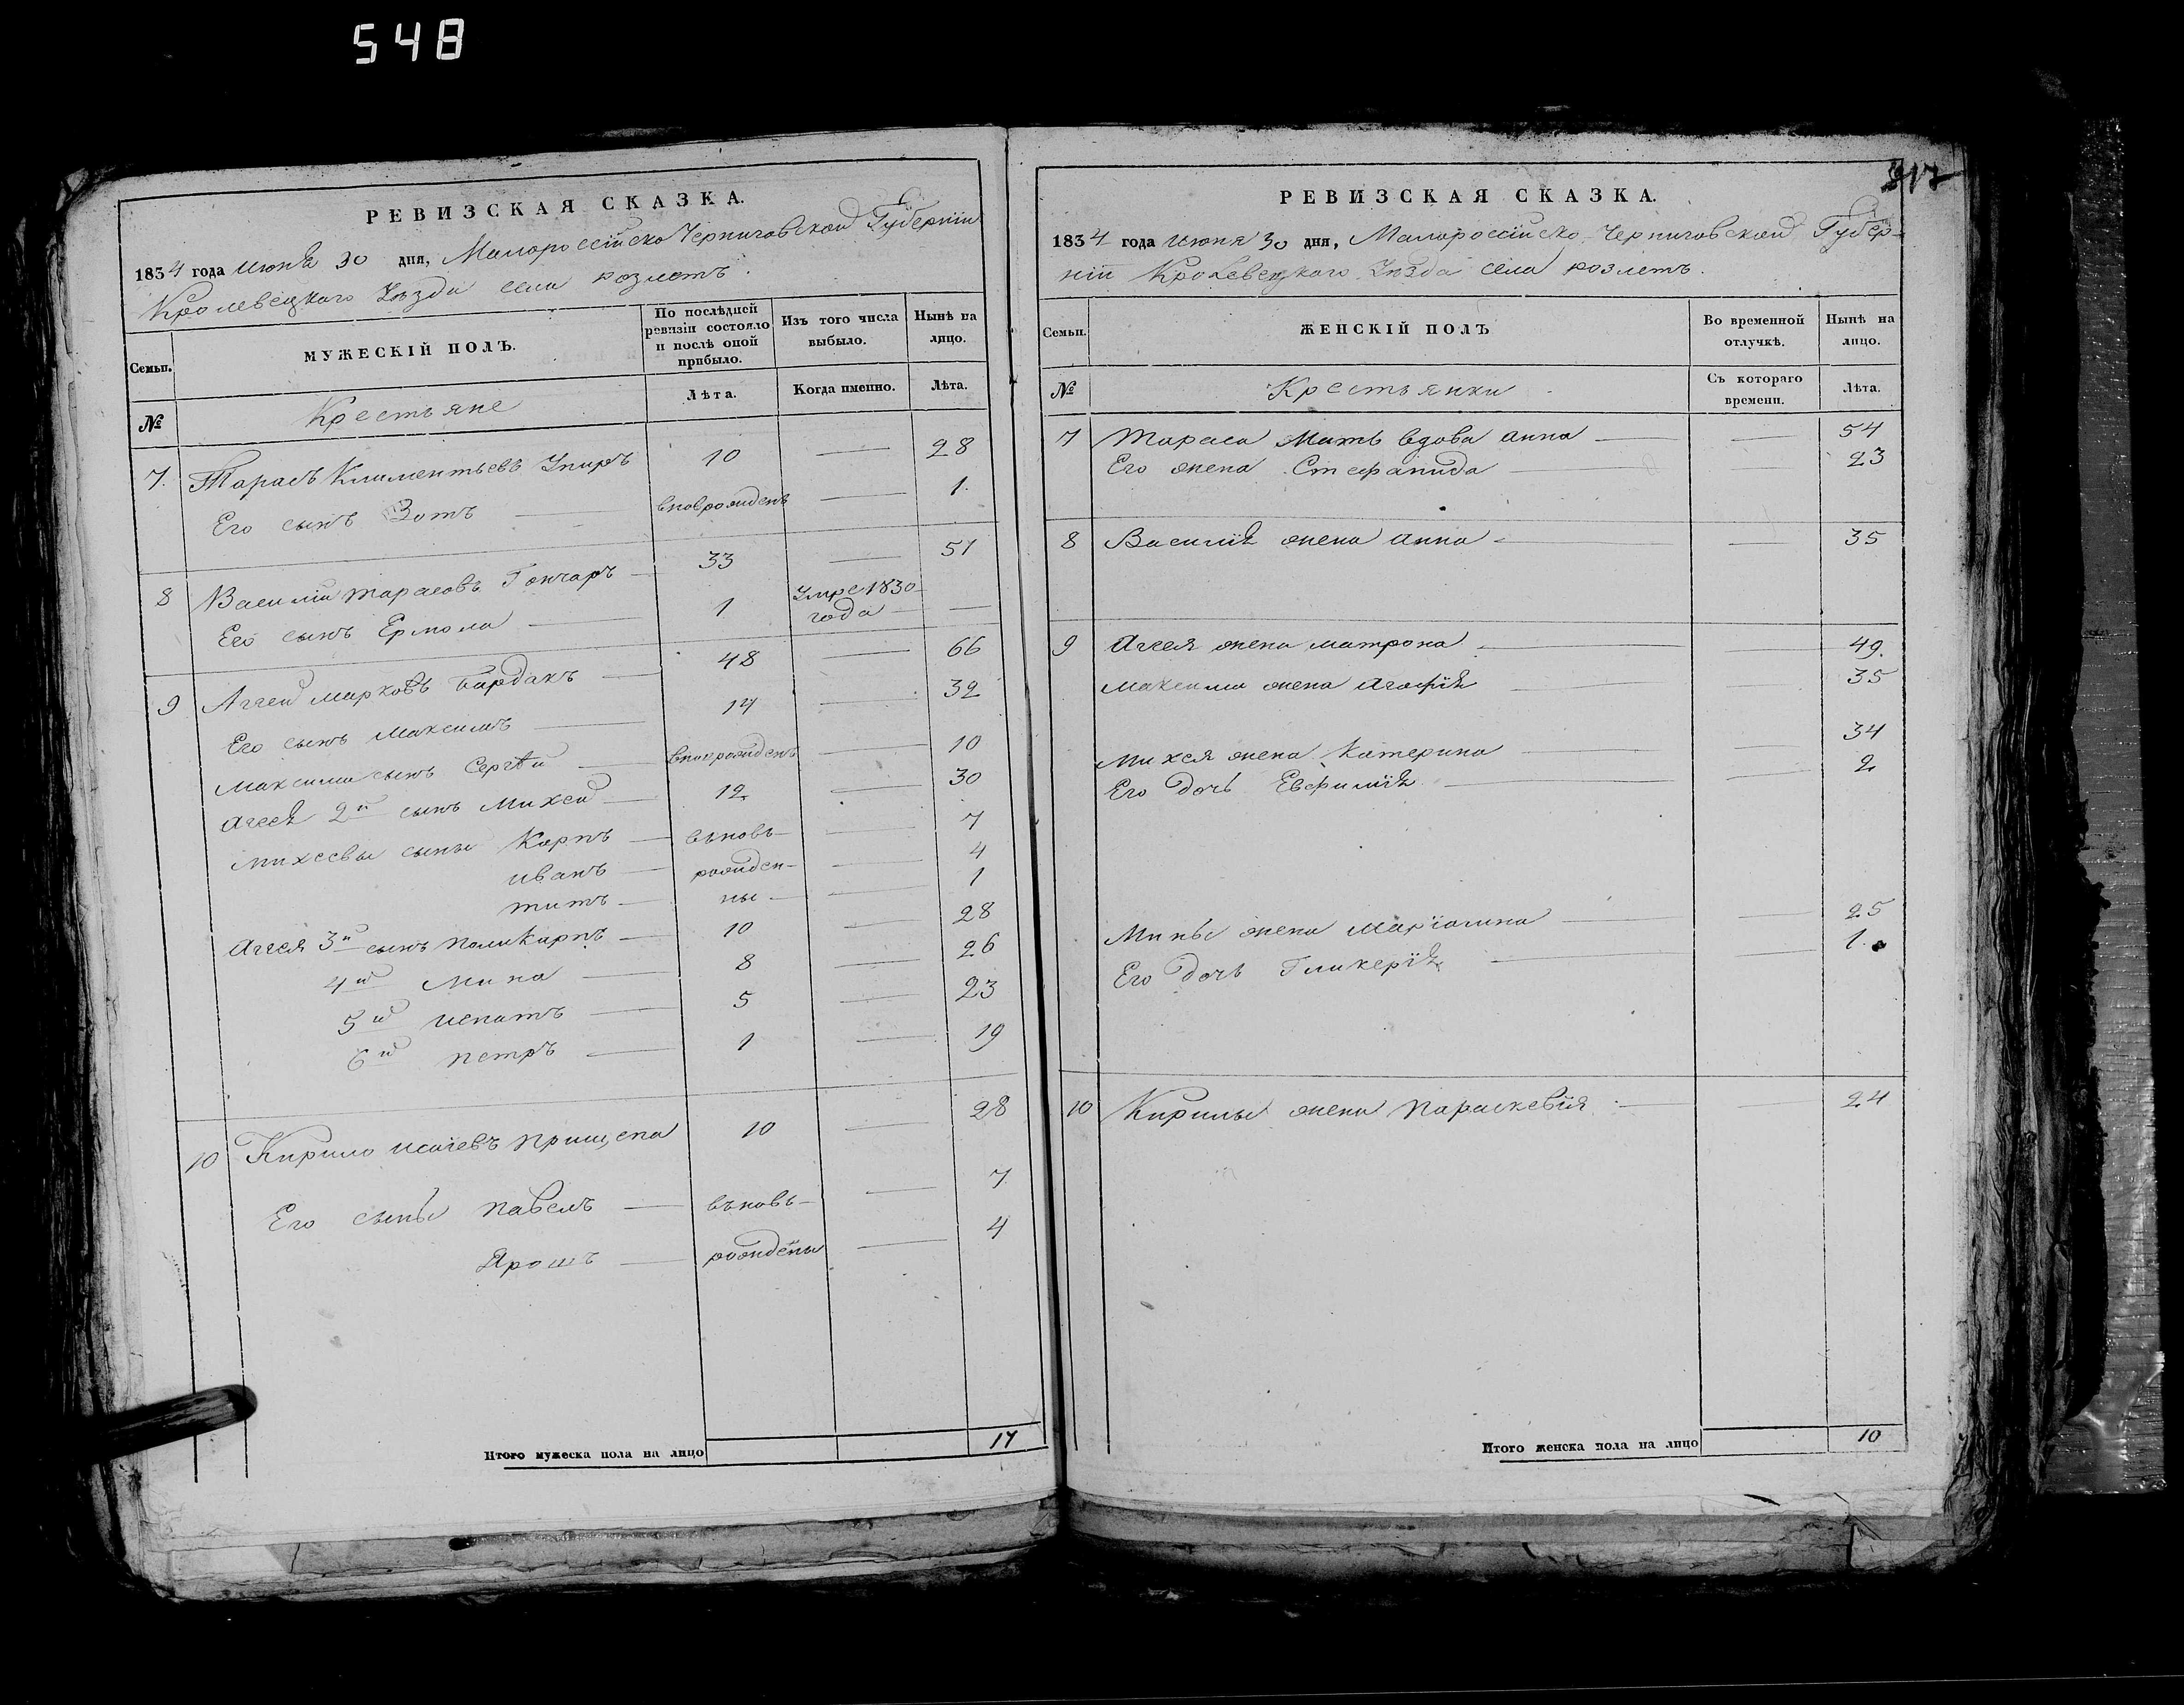 548
РЕВИЗСКАЯ СКАЗКА.
1834 года Июня 30 дня, Малороссійско Черниговской Губерніи
Кролевецкаго Уѣзда села розлетъ.
Семьи.
МУЖЕСКІЙ ПОЛЪ.
По послѣдней ревизіи состояло и послѣ оной прибыло.
Изъ того числа выбыло.
Нынѣ на лицо.
№
Крестьяне
Лѣта.
Когда именно.
Лѣта.
7. Тарасъ Климентьевъ Упиръ 10 — 28
Его сынъ Зотъ — вноврожденъ — 1.
8 Василій Тарасовъ Гончаръ — 33 — 51
Его сынъ Ермола — 1 Умре 1830 года — —
9 Аггей Марковъ Бардакъ — 48 — 66
Его сынъ Максимъ — 14 — 32
Максима сынъ Сергѣй — вноврожденъ — 10
Аггея 2й сынъ Михей — 12 — 30
Михеевы сыны Карпъ — вьновь — — 7
иванъ — рожден- — 4
титъ — ны — — 1
Аггея 3й сынъ поликарпъ — 10 — 28
4й Мина — 8 — 26
5й игнатъ — 5 — 23
6й петръ — 1 — 19
10 Кирило исаіевъ прищепа 10 — 28
Его сыны павелъ — вьновь — — 7
Ярошъ — рождены — 4
Итого мужеска пола на лицо 17
317
РЕВИЗСКАЯ СКАЗКА.
1834 года Июня 30 дня, Малороссійско Черниговской Губер-
ніи Кролевецкаго Уѣзда села розлетъ.
Семьи.
ЖЕНСКІЙ ПОЛЪ
Во временной отлучкѣ.
Нынѣ на лицо.
№
Крестьянки
Съ котораго времени.
Лѣта.
7 Тараса Мать вдова анна — — 54
Его жена Стефанида — — 23
8 Василія жена анна — — 35
9 Аггея жена матрона — — 49.
Максима жена Агафія — — 35
Михея жена Катерина — — 34
Его дочь Евфимія — — 2
Мины жена Маріанна — — 25
Его дочь Гликерія — — 1.
10 Кирилы жена параскевія — — 24
Итого женска пола на лицо 10